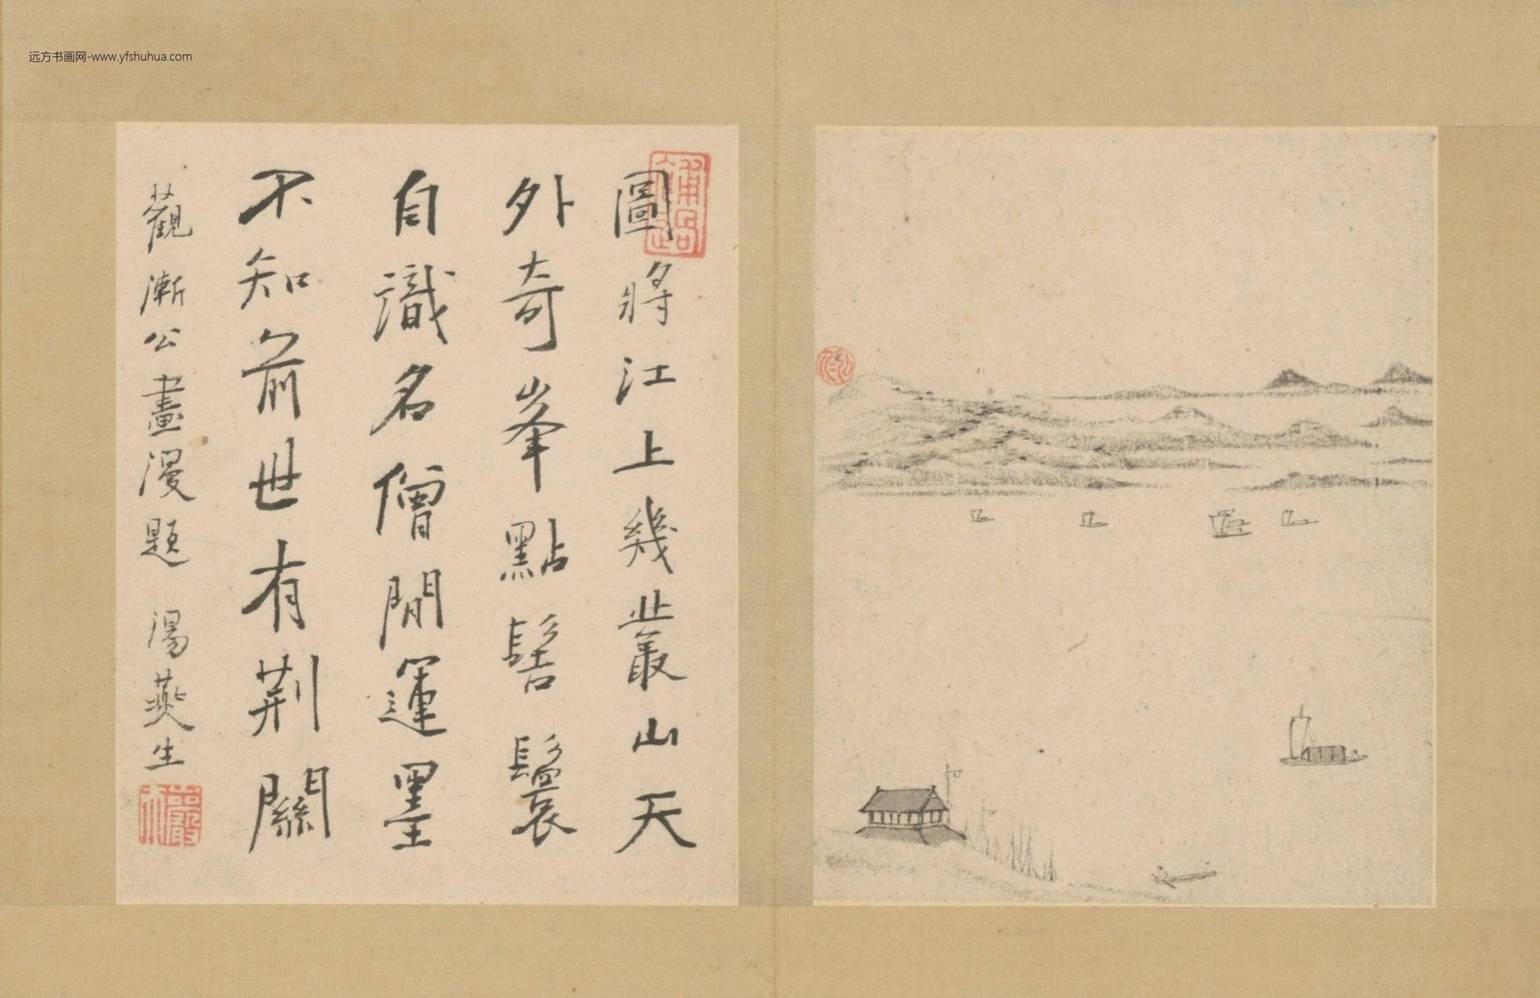 远方书画网-www.yfshuhua.com
圖將江上幾叢山天
外奇峯點髻鬟
自識名僧閒運墨
不知前世有荆關
觀漸公畫漫題 湯燕生